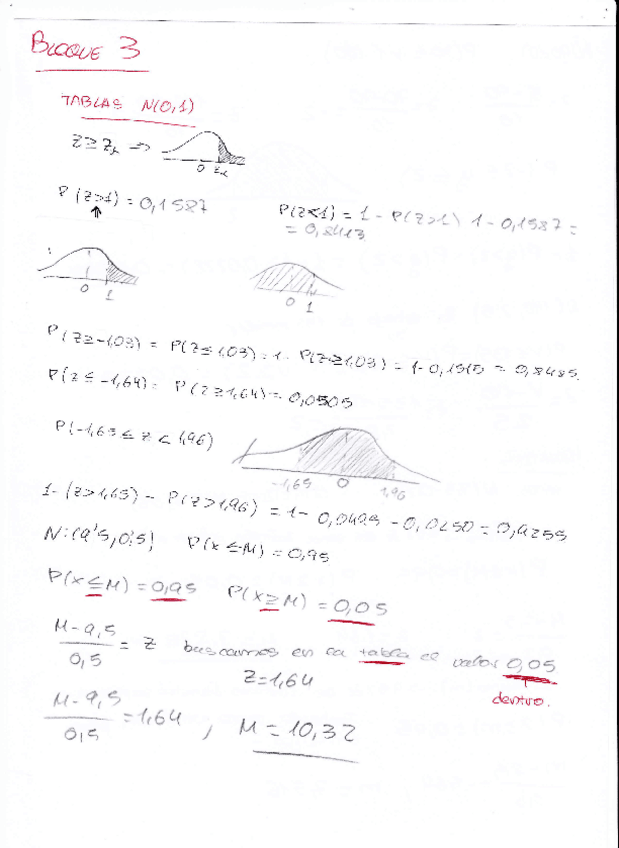 BLOQUE 3
TABLAS N(0,1)
Z ≥ Zα →
0 Zα
P(Z>1) = 0,1587
P(Z<1) = 1 - P(Z>1) 1 - 0,1587 =
= 0,8413
0 1
0 1
P(Z ≥ -1,03) = P(Z ≤ 1,03) = 1 - P(Z ≥ 1,03) = 1 - 0,1515 = 0,8485
P(Z ≤ -1,64) = P(Z ≥ 1,64) = 0,0505
P(-1,65 ≤ Z < 1,96)
-1,65 0 1,96
1 - (Z > 1,65) - P(Z > 1,96) = 1 - 0,0495 - 0,0250 = 0,9255
N:(9'5, 0'5) P(x ≤ M) = 0,95
P(x ≤ M) = 0,95 P(x ≥ M) = 0,05
M - 9,5 / 0,5 = Z buscamos en la tabla el valor 0,05
Z = 1,64
dentro.
M - 9,5 / 0,5 = 1,64 , M = 10,32